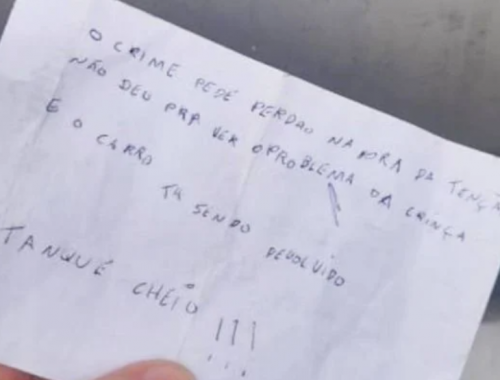 O CRIME PEDE PERDAO NA HORA DA TENÇA
NÃO DEU PRA VER O PROBLEMA DA CRINÇA
E O CARRO TA SENDO DEVOLVIDO
TANQUÉ CHEIO !!!